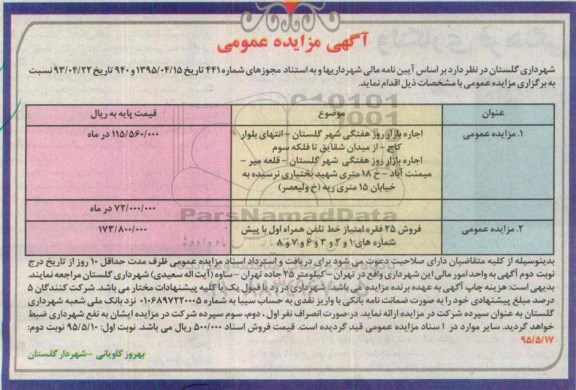 آگهی مزایده عمومی
شهرداری گلستان در نظر دارد بر اساس آیین نامه مالی شهرداریها و به استناد مجوزهای شماره ۴۴۱ تاریخ ۱۳۹۵/۰۴/۱۵ و ۹۴۰ تاریخ ۹۳/۰۴/۲۲ نسبت
به برگزاری مزایده عمومی با مشخصات ذیل اقدام نماید.
عنوان موضوع قیمت پایه به ریال
۱. مزایده عمومی اجاره بازار روز هفتگی شهر گلستان - انتهای بلوار ۱۱۵/۵۶۰/۰۰۰ در ماه
کاج - از میدان شقایق تا فلکه سوم
اجاره بازار روز هفتگی شهر گلستان - قلعه میر -
میمنت آباد - خ ۱۸ متری شهید بختیاری نرسیده به
خیابان ۱۵ متری ریه (خ ولیعصر)
۷۲/۰۰۰/۰۰۰ در ماه
۲. مزایده عمومی فروش ۲۵ فقره امتیاز خط تلفن همراه اول با پیش ۱۷۳/۸۰۰/۰۰۰
شماره های ۱ و ۲ و ۳ و ۶ و ۷ و ۸
ParsNamadData
بدینوسیله از کلیه متقاضیان دارای صلاحیت دعوت می شود برای دریافت و استرداد اسناد مزایده عمومی ظرف مدت حداقل ۱۰ روز از تاریخ درج
نوبت دوم آگهی به واحد امور مالی این شهرداری واقع در تهران - کیلومتر ۲۵ جاده تهران - ساوه (آیت اله سعیدی) شهرداری گلستان مراجعه نمایند.
بدیهی است: هزینه چاپ آگهی به عهده برنده مزایده می باشد. شهرداری در رد یا قبول یک یا کلیه پیشنهادات مختار می باشد. شرکت کنندگان ۵
درصد مبلغ پیشنهادی خود را به صورت ضمانت نامه بانکی یا واریز نقدی به حساب سیبا به شماره ۰۱۰۶۸۹۷۲۲۰۰۵ نزد بانک ملی شعبه شهرداری
گلستان به عنوان سپرده شرکت در مزایده ارائه نماید. در صورت انصراف نفر اول، دوم، سوم سپرده شرکت در مزایده ایشان به نفع شهرداری ضبط
خواهد گردید. سایر موارد در اسناد مزایده عمومی قید گردیده است. قیمت فروش اسناد ۵۰۰/۰۰۰ ریال می باشد. نوبت اول: ۹۵/۵/۱۰ نوبت دوم:
۹۵/۵/۱۷
بهروز کاویانی - شهردار گلستان